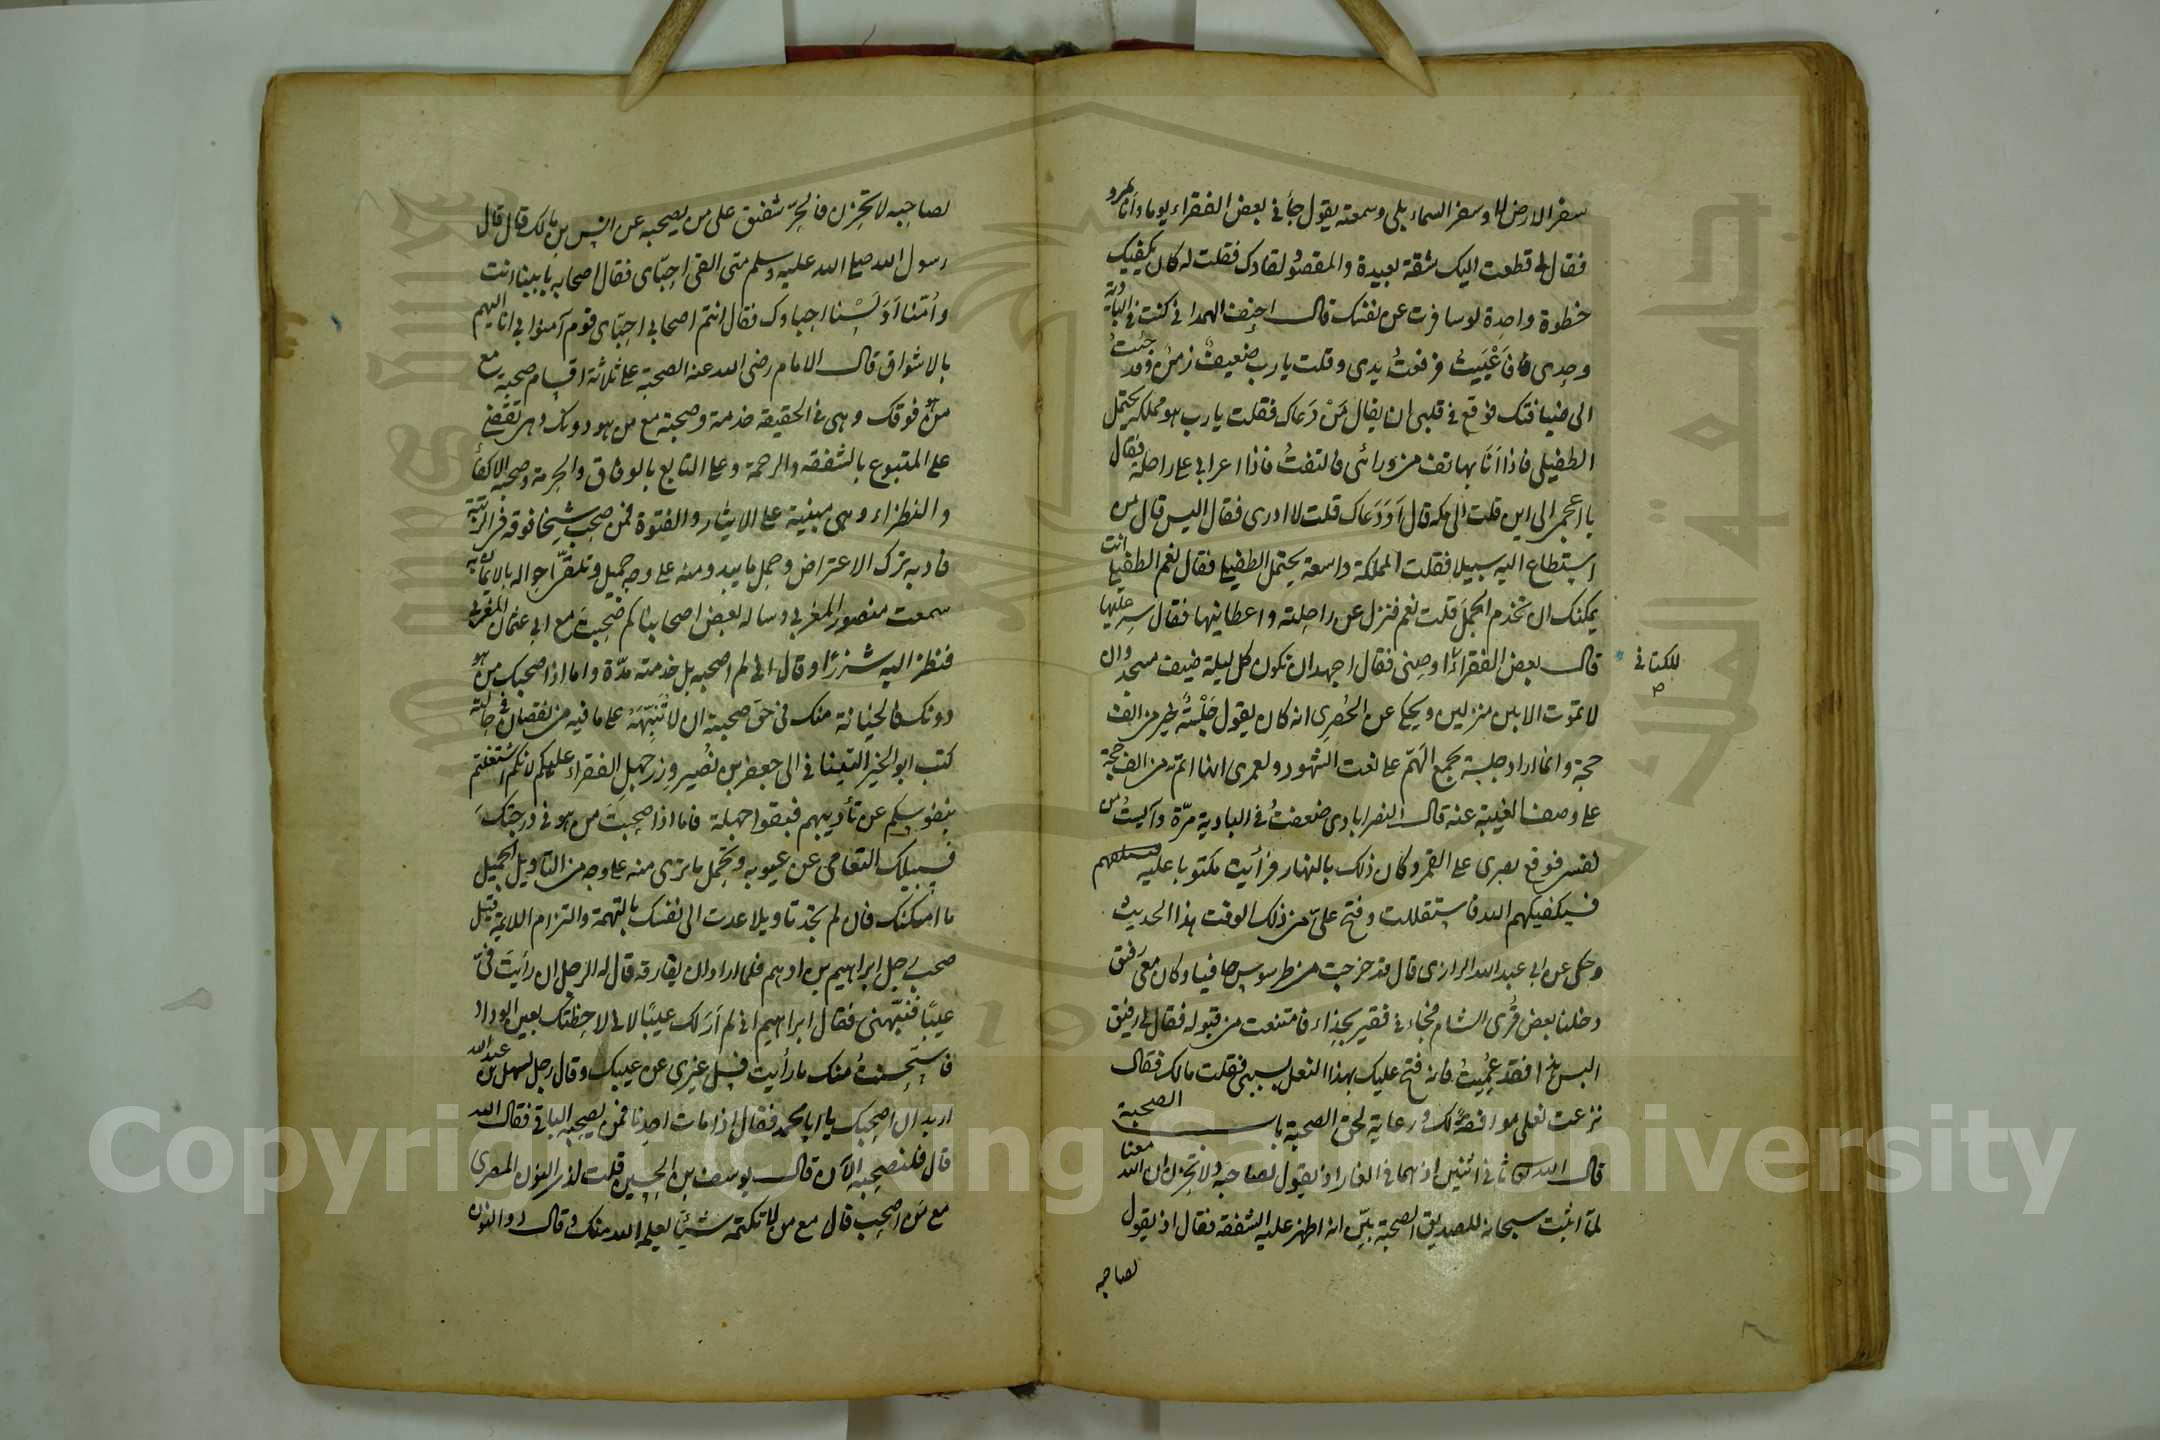 سفر الارض لا وسفر السماء بلى وسمعته يقول جاءني بعض الفقراء يوما وانا بمرو
فقال لي قطعت اليك شقة بعيدة والمقصود لقاؤك فقلت له كان يكفيك
خطوة واحدة لو سافرت عن نفسك قال احنف الهمداني كنت في البادية
وحدي فاعييت فرفعت يدي وقلت يا رب ضعيف زمن وقد جئت
الى ضيافتك فوقع في قلبي ان يقال من دعاك فقلت يا رب هو مملكة يحتمل
الطفيلي فاذا انا بهاتف من ورائي فالتفت فاذا اعرابي على راحلة فقال
يا اعجمي الى اين قلت الى مكة قال اودعاك قلت لا ادري فقال اليس قال من
استطاع اليه سبيلا فقلت المملكة واسعة يحتمل الطفيلي فقال نعم الطفيلي انت
يمكنك ان تخدم الجمل قلت نعم فنزل عن راحلته واعطانيها فقال سر عليها
قال بعض الفقراء اوصني فقال اجهد ان تكون كل ليلة ضيف مسجد وان
للكتاني
لا تموت الا بين منزلين ويحكى عن الحصري انه كان يقول جلسة خير من الف
حجة وانما اراد جلسة تجمع الهم على نعت الشهود ولعمري انها اتم من الف حجة
على وصف الغيبة عنه قال النصراباذي ضعفت في البادية مرة وآيست من
نفسي فوقع بصري على القمر وكان ذلك بالنهار فرأيت مكتوبا عليه
فسيكفيكهم الله فاستقللت وفتح علي من ذلك الوقت هذا الحديث
وحكى عن ابي عبد الله الرازي قال قد خرجت من طرسوس حافيا وكان معي رفيق
دخلنا بعض قرى الشام فجاءني فقير بحذاء فامتنعت من قبوله فقال لي رفيق
البس هذا فقد عييت فانه فتح عليك بهذا النعل بسببي فقلت مالك فقال
نزعت نعلي موافقة لك ورعاية لحق الصحبة باب الصحبة
قال الله تعالى ثاني اثنين اذ هما في الغار اذ يقول لصاحبه لا تحزن ان الله معنا
لما اثبت سبحانه للصديق الصحبة بين انه اظهر عليه الشفقة فقال اذ يقول
لصاحبه
لصاحبه لا تحزن فالحر شفيق على من يصحبه عن انس بن مالك قال قال
رسول الله صلى الله عليه وسلم متى القى احبائي فقال اصحابه بابينا انت
وامنا اولسنا احباؤك فقال انتم اصحابي احبائي قوم آمنوا بي انا اليهم
بالاشواق قال الامام رضي الله عنه الصحبة على ثلاثة اقسام صحبة مع
من هو فوقك وهي في الحقيقة خدمة وصحبة مع من هو دونك وهي تقضي
على المتبوع بالشفقة والرحمة وعلى التابع بالوفاق والحرمة وصحبة الاكفاء
والنظراء وهي مبنية على الايثار والفتوة فمن صحب شيخا فوقه في الرتبة
فادبه ترك الاعتراض وحمل ما يبدو منه على وجه جميل وتلقي احواله بالايمان به
سمعت منصور المغربي وساله بعض اصحابنا كم صحبت مع ابي عثمان المغربي
فنظر اليه شزرا وقال اني لم اصحبه بل خدمته مدة واما اذا صحبك من هو
دونك فالخيانة منك في حق صحبته ان لا تنبهه على ما فيه من نقصان في حالته
كتب ابو الخير التيناتي الى جعفر بن نصير وزر جهل الفقراء عليكم لانكم اشتغلتم
بنفوسكم عن تأديبهم فبقوا جهلة فاما اذا صحبت من هو في درجتك
فسبيلك التعامي عن عيوبه وتحمل ما ترى منه على وجه من التاويل الجميل
ما امكنك فان لم تجد تاويلا عدت الى نفسك بالتهمة والتزام اللائمة قيل
صحب رجل ابراهيم بن ادهم فلما اراد ان يفارقه قال له الرجل ان رأيت في
عيبا فنبهني فقال ابراهيم اني لم ار لك عيبا لاني لاحظتك بعين الوداد
فاستحسنت منك ما رأيت فسل غيري عن عيبك وقال رجل لسهل بن عبد الله
اريد ان اصحبك يا ابا محمد فقال اذا مات احدنا فمن يصحبه الباقي فقال الله
قال فلنصحبه الآن قال يوسف بن الحسين قلت لذي النون المصري
مع من اصحب قال مع من لا تكتمه شيئا يعلمه الله منك وقال ذو النون